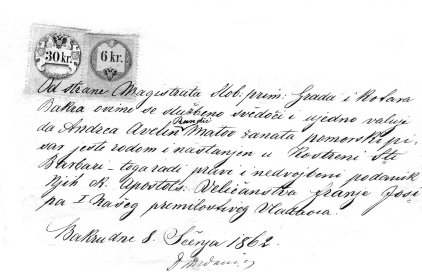 30 kr.
6 kr.
Od strane Magistrata slob. prim. Grada i kotara
Bakra ovime se službeno svědoči i ujedno valuje
da Andrea Avelin Mateo žanata pomorski pi-
sar jeste rodom i nastanjen u Kostreni Ste
Barbari - toga radi pravi i nedvojbeni podanik
Njih. K. Apostols. Veličanstva Franje Josi-
pa I našeg premilostivog Vladaoca.
Bakru dne 8. Sěčnja 1862.